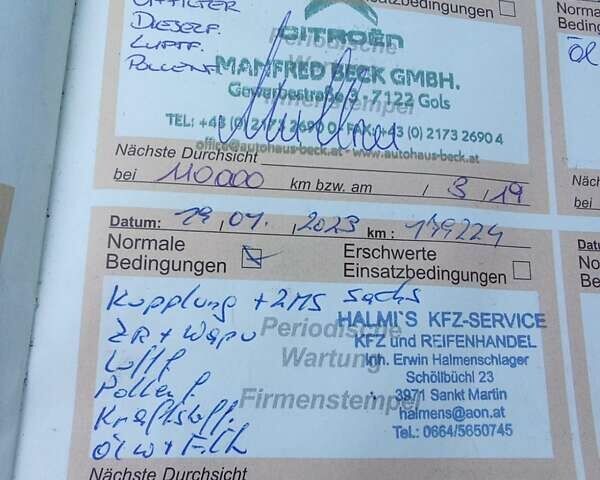 ÖLFILTER
DIESELF.
LUFTF.
POLLENF.
CITROËN
Periodische
Wartung
Firmenstempel
MANFRED BECK GMBH.
Gewerbestraße 3 - 7122 Gols
TEL: +43 (0) 2173 2690 0 - FAX: +43 (0) 2173 2690 4
office@autohaus-beck.at - www.autohaus-beck.at
Nächste Durchsicht
bei 110000 km bzw. am / 3 / 19
Normal
Beding
Öl
Näch
bei
Datum: 19, 01, 2023 km: 179224
Normale
Bedingungen
Erschwerte
Einsatzbedingungen
Kupplung + ZMS Sachs
ZR + Wapu
Luftf
Pollenf
Kraftstoff.
Ölw + Filt
Periodische
Wartung
Firmenstempel
HALMI'S KFZ-SERVICE
KFZ und REIFENHANDEL
Inh. Erwin Halmenschlager
Schöllbüchl 23
3971 Sankt Martin
halmens@aon.at
Tel.: 0664/5650745
Nächste Durchsicht
Datu
No
Be